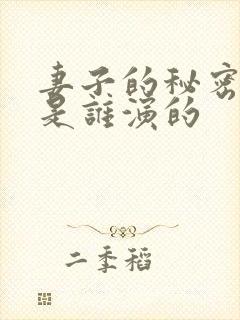 妻子的秘密
是誰演的
二季稻